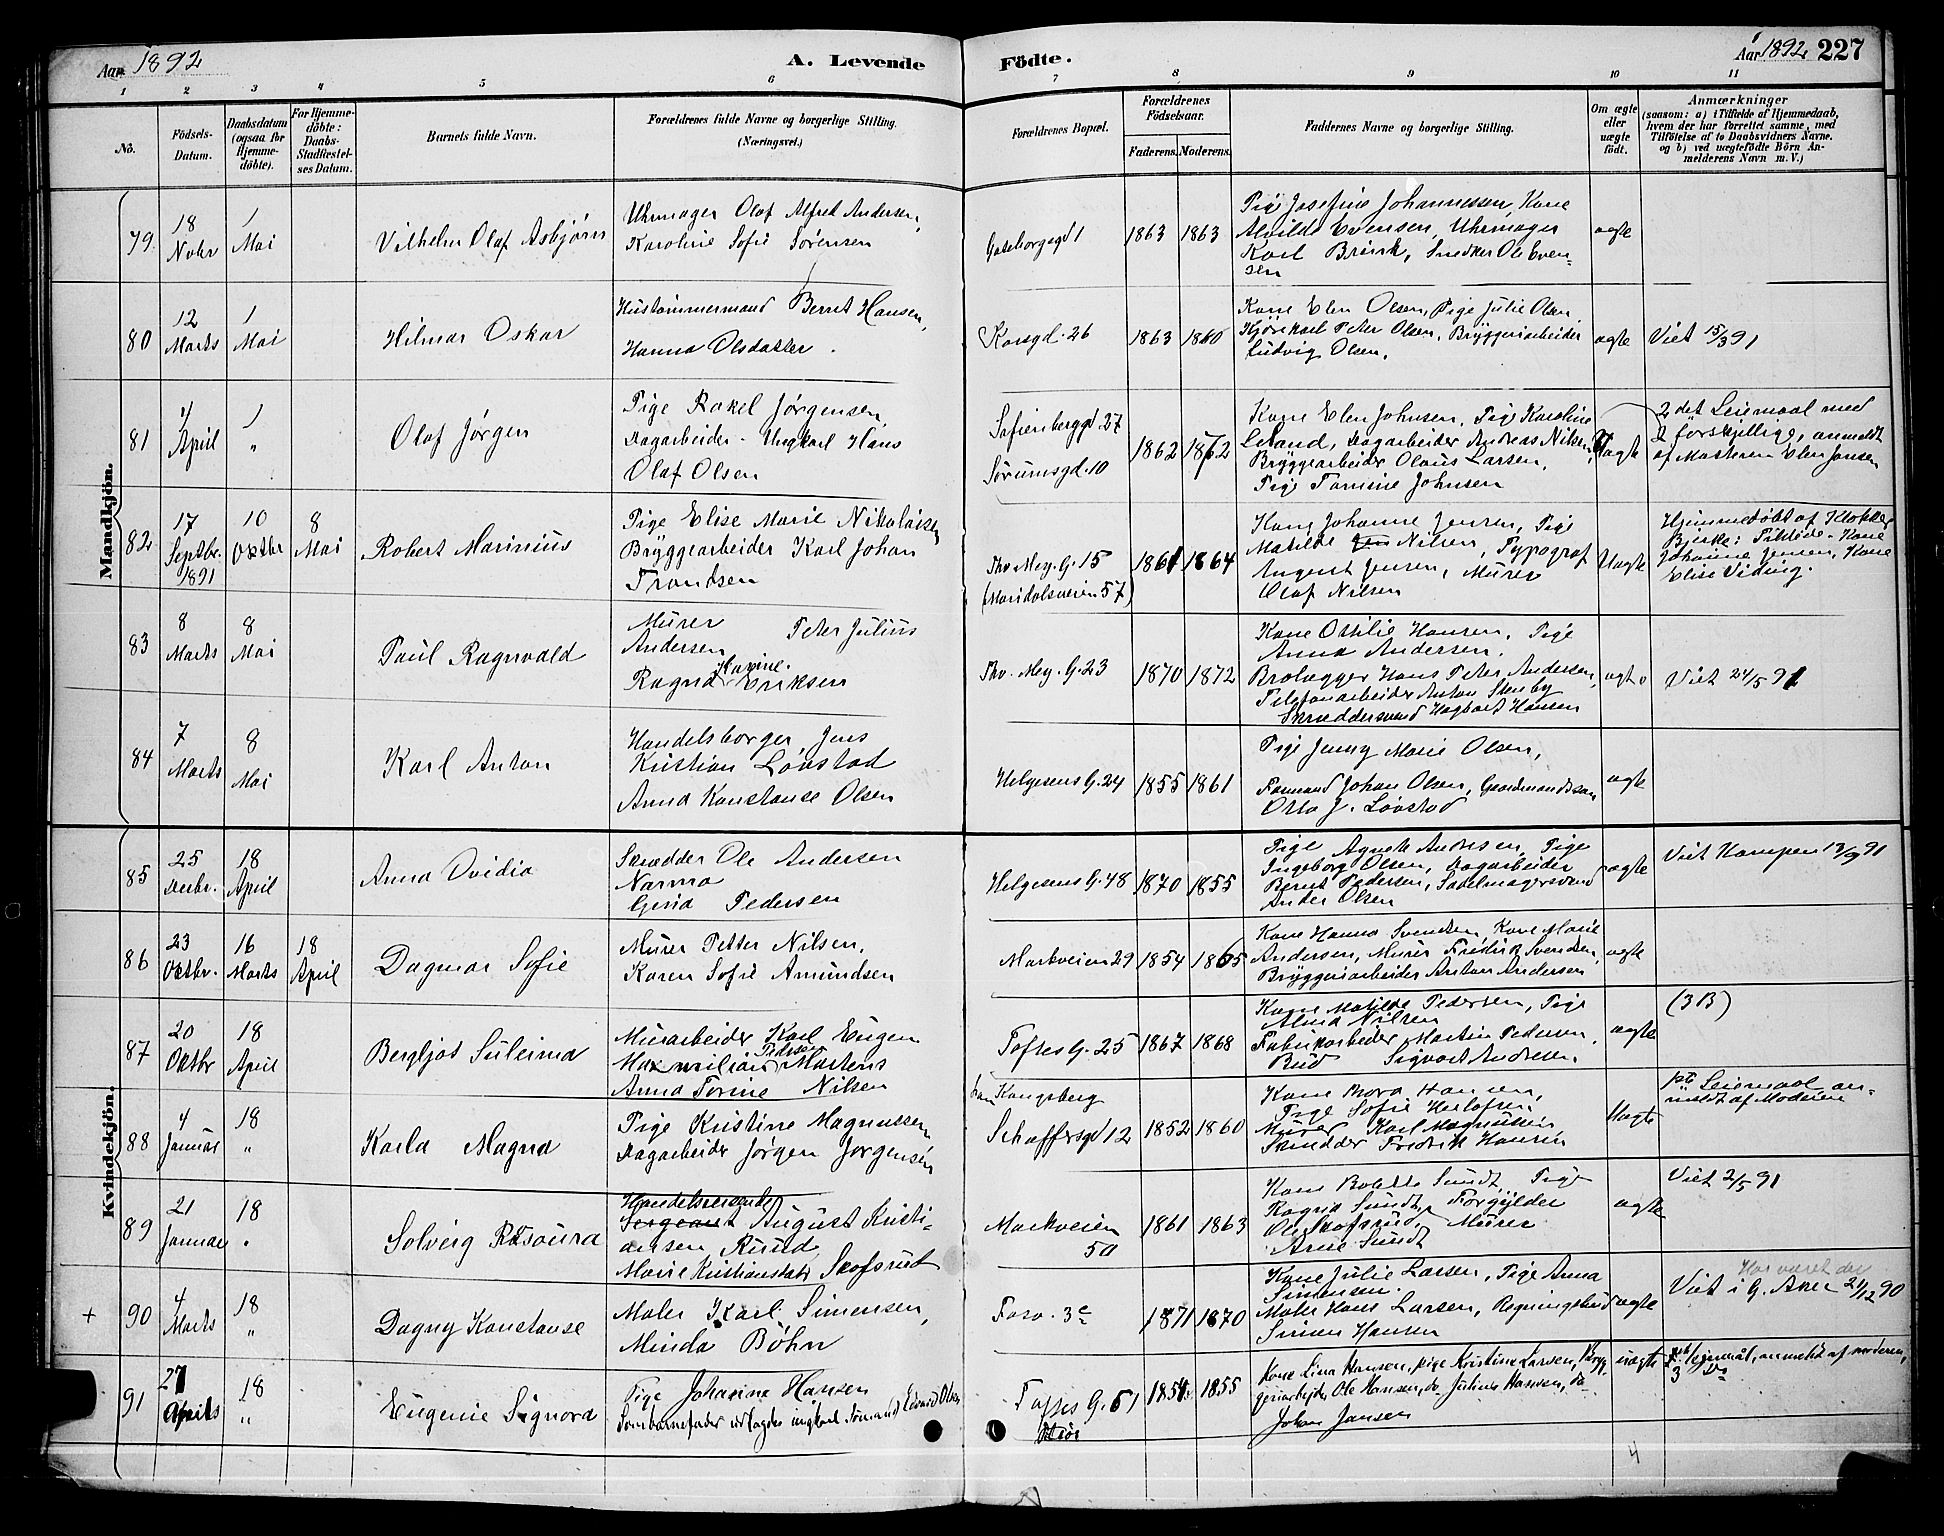 Aar 1892
A. Levende
Födte.
Aar 1892
227
1 2 3 4 5 6 7 8 9 10 11
No.
Födsels-
Datum.
Daabsdatum
(ogsaa for
Hjemme-
döbte).
For Hjemme-
döbte:
Daabs-
Stadfæstel-
ses Datum.
Barnets fulde Navn.
Forældrenes fulde Navne og borgerlige Stilling.
(Næringsvei.)
Forældrenes Bopæl.
Forældrenes
Födselsaar.
Faderens. Moderens.
Faddernes Navne og borgerlige Stilling.
Om ægte
eller
uægte
födt.
Anmærkninger
(saasom: a) i Tilfælde af Hjemmedaab,
hvem der har forrettet samme, med
Tilföielse af to Daabsvidners Navne.
og b) ved uægtefödte Börn An-
melderens Navn m. V.)
Mandkjön.
Kvindekjön.
79
18
Novbr
1
Mai
Vilhelm Olaf Asbjørn
Uhrmager Olaf Alfred Andersen,
Karoline Sofie Sørensen
Gøteborggd 1
1863 1863
Pige Josefine Johannessen, Kone
Alvilde Evensen, Uhrmager
Karl Brink, Snedker Ole Even-
sen
ægte
80
12
Marts
1
Mai
Hilmar Oskar
Hustømmermand Bernt Hansen,
Hanna Olsdatter.
Korsgd. 26
1863 1860
Kone Elen Olsen, Pige Julie Olsen,
Kjørekarl Peter Olsen, Bryggeriarbeider
Ludvig Olsen.
ægte
Viet 15/3 91
81
April
1
"
Olaf Jørgen
Pige Rakel Jørgensen,
Dagarbeider - Ungkarl Hans
Olaf Olsen
Sofienberggd. 27
Sørumsgd. 10
1862 1872
Kone Elen Johnsen, Pige Karoline
Leland, Dagarbeider Andreas Nilsen,
Bryggearbeider Olaus Larsen,
Pige Tomine Johnsen
Uægte
2det Leiemaal med
2 forskjellige, anmeldt
af Mosteren Elen Jansen
82
17
Septbr.
1891
10
Oktbr
8
Mai
Robert Marinius
Pige Elise Marie Nikolaisen
Bryggearbeider Karl Johan
Trondsen
Thv. Mey. G. 15
(Maridalsveien 57)
1861 1864
Kone Johanne Jensen, Pige
Matilde Nilsen, Typograf
August Jensen, Murer
Olaf Nilsen
Uægte
Hjemmedøbt af Klokker
Bjerke: Tilstede - Kone
Johanne Jensen, Kone
Elise Viding.
83
8
Marts
8
Mai
Paul Ragnvald
Murer Peter Julius
Andersen
Ragna Karine Eriksen
Thv. Mey. G. 23
1870 1872
Kone Ottilie Hansen, Pige
Anna Andersen,
Brolægger Hans Peter Andersen,
Telefonarbeider Anton Stenby
Skræddersvend Hagbart Hansen
ægte
Viet 24/5 91
84
7
Marts
8
Mai
Karl Anton
Handelsborger Jens
Kristian Løvstad
Anna Konstanse Olsen
Helgesens G. 24
1855 1861
Pige Jenny Marie Olsen,
Formand Johan Olsen, Gaardmandssøn
Otto J. Løvstad
ægte
85
25
Decbr.
18
April
Anna Ovidia
Skrædder Ole Andersen
Narmo
Gerid Pedersen
Helgesens G. 48
1870 1855
Pige Agnete Andersen, Pige
Ingeborg Olsen, Dagarbeider
Bernt Pedersen, Sadelmagersvend
Ander Olsen
ægte
Viet Kampen 13/9 91
86
23
Oktbr.
16
Marts
18
April
Dagmar Sofie
Murer Petter Nilsen,
Karen Sofie Amundsen
Markveien 29
1854 1865
Kone Hanna Svendsen, Kone Marie
Andersen, Murer Fredrik Svendsen,
Bryggeriarbeider Anton Andersen
ægte
87
20
Oktbr
18
April
Bergljot Suleima
Murarbeider Karl Eugen
Maxmilian Pedersen Martens
Anna Torine Nilsen
Toftes G. 25
1867 1868
Kone Matilde Pedersen, Pige
Alma Nilsen
Fabrikarbeider Martin Pedersen,
Bud Sigvart Andresen.
ægte
(3B)
88
4
Januar
18
"
Karla Magna
Pige Kristine Magnussen
Dagarbeider Jørgen Jørgensen
Kongsberg
Schaffersgd 12
1852 1860
Kone Mora Hansen,
Pige Sofie Herlofsen,
Murer Karl Magnussen
Skrædder Fredrik Hansen
Uægte
1ste Leiemaal an-
meldt af Moderen
89
21
Januar
18
"
Solveig Rosaura
Handelsreisende
Sergeant August Kristi-
ansen Ruud,
Marie Kristiansdatr Skofsrud
Markveien
50
1861 1863
Kone Bolette Sundt, Pige
Ragna Sundt, Forgylder
Ole Skofsrud, Murer
Arne Sundt
ægte
Viet 2/5 91
+
90
4
Marts
18
"
Dagny Konstanse
Maler Karl Simensen,
Minda Bøhn
Fosv. 3c
1871 1870
Kone Julie Larsen, Pige Anna
Simensen.
Maler Hans Larsen, Regningsbud
Simen Hansen
ægte
Har været der
Viet i G. Aker 21/12 90
91
27
April
18
"
Eugenie Signora
Pige Johasine Hansen
Som barnefader udlagdes ungkarl Sømand Edvard Olsen
Toftes G. 51
1854 1855
Kone Lina Hansen, pige Kristine Larsen, Bryg-
geriarbeider Ole Hansen, do Julius Hansen, do
Johan Jansen
uægte
lejermål, anmeldt af moderen,
4